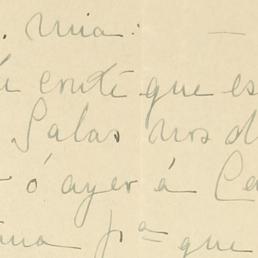 . mia: —
é conté que es
Salas nos d
ó ayer á Ca
ma pª que